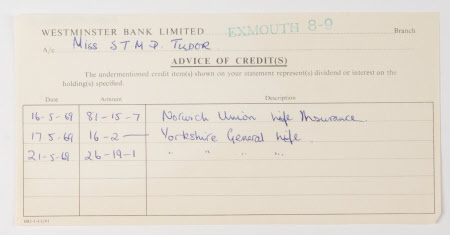 WESTMINSTER BANK LIMITED EXMOUTH 8-9 Branch
A/c Miss S T M P. Tudor.
ADVICE OF CREDIT(S)
The undermentioned credit item(s) shown on your statement represent(s) dividend or interest on the
holding(s) specified.
Date Amount Description
16-5-69 81-15-7 Norwich Union Life Insurance
17 5-69 16-2— Yorkshire General Life.
21-5-69 26-19-1 " " " "